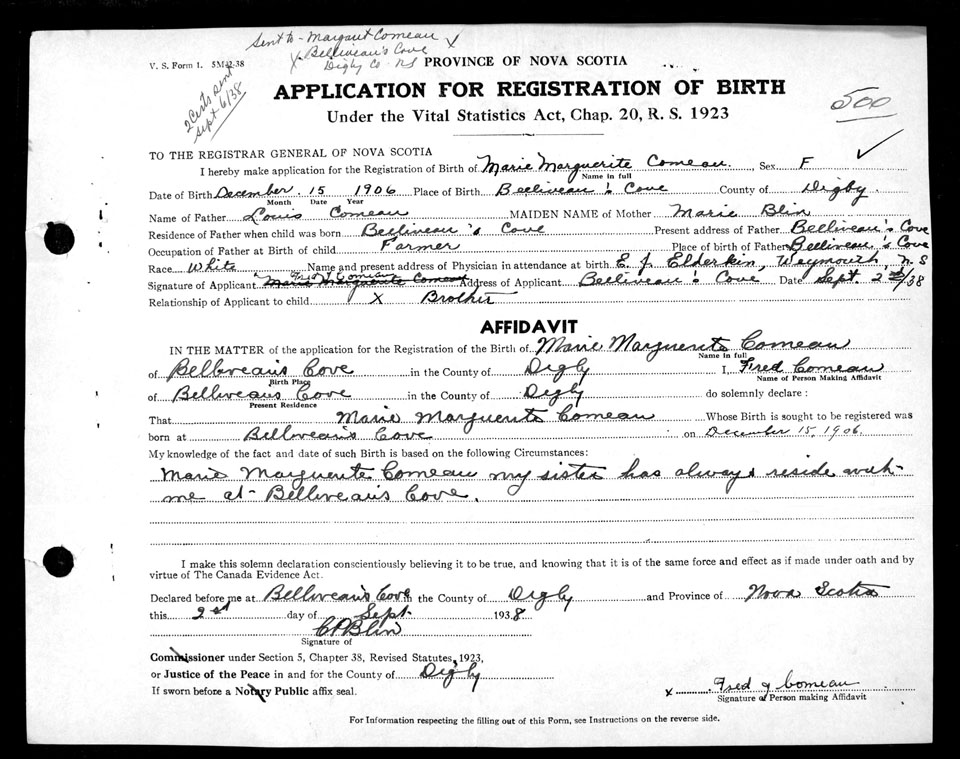 Sent to - Margaret Comeau
Belliveau's Cove
Digby Co NS
V. S. Form 1. 5M-2-38
PROVINCE OF NOVA SCOTIA
2 Certs sent
Sept 6/38
500
APPLICATION FOR REGISTRATION OF BIRTH
Under the Vital Statistics Act, Chap. 20, R. S. 1923
TO THE REGISTRAR GENERAL OF NOVA SCOTIA
I hereby make application for the Registration of Birth of Marie Marguerite Comeau. Sex F
Name in full
Date of Birth December 15 1906 Place of Birth Belliveau's Cove County of Digby
Month Date Year
Name of Father Louis Comeau MAIDEN NAME of Mother Marie Blin
Residence of Father when child was born Belliveau's Cove Present address of Father Belliveau's Cove
Occupation of Father at Birth of child Farmer Place of birth of Father Belliveau's Cove
Race White Name and present address of Physician in attendance at birth E. J. Elderkin, Weymouth, N S
Fred J Comeau
Signature of Applicant Marie Marguerite Comeau Address of Applicant Belliveau's Cove Date Sept. 2 /38
Relationship of Applicant to child X Brother
AFFIDAVIT
IN THE MATTER of the application for the Registration of the Birth of Marie Marguerite Comeau
Name in full
of Belliveau's Cove in the County of Digby I, Fred Comeau
Birth Place Name of Person Making Affidavit
of Belliveau's Cove in the County of Digby do solemnly declare :
Present Residence
That Marie Marguerite Comeau Whose Birth is sought to be registered was
born at Belliveau's Cove on December 15, 1906.
My knowledge of the fact and date of such Birth is based on the following Circumstances:
Marie Marguerite Comeau my sister has always reside with
me at Belliveau's Cove.
I make this solemn declaration conscientiously believing it to be true, and knowing that it is of the same force and effect as if made under oath and by
virtue of The Canada Evidence Act.
Declared before me at Belliveau's Cove in the County of Digby and Province of Nova Scotia
this 2nd day of Sept. 1938
C P Blin
Signature of
Commissioner under Section 5, Chapter 38, Revised Statutes, 1923,
or Justice of the Peace in and for the County of Digby
If sworn before a Notary Public affix seal.
x Fred J Comeau
Signature of Person making Affidavit
For Information respecting the filling out of this Form, see Instructions on the reverse side.